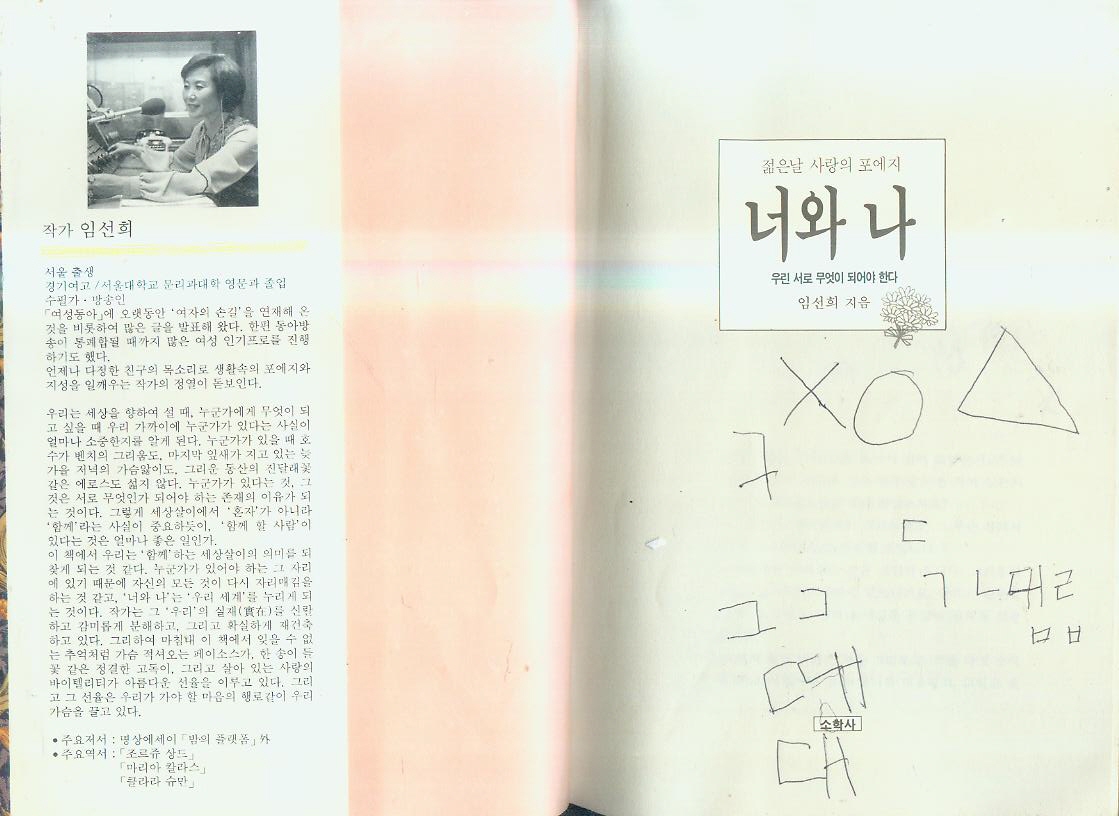 작가 임선희
서울 출생
경기여고/서울대학교 문리과대학 영문과 졸업
수필가·방송인
「여성동아」에 오랫동안 '여자의 손길'을 연재해 온
것을 비롯하여 많은 글을 발표해 왔다. 한편 동아방
송이 통폐합될 때까지 많은 여성 인기프로를 진행
하기도 했다.
언제나 다정한 친구의 목소리로 생활속의 포에지와
지성을 일깨우는 작가의 정열이 돋보인다.
우리는 세상을 향하여 설 때, 누군가에게 무엇이 되
고 싶을 때 우리 가까이에 누군가가 있다는 사실이
얼마나 소중한지를 알게 된다. 누군가가 있을 때 호
수가 벤치의 그리움도, 마지막 잎새가 지고 있는 늦
가을 저녁의 가슴앓이도, 그리운 동산의 진달래꽃
같은 에로스도 섧지 않다. 누군가가 있다는 것, 그
것은 서로 무엇인가 되어야 하는 존재의 이유가 되
는 것이다. 그렇게 세상살이에서 '혼자'가 아니라
'함께'라는 사실이 중요하듯이, '함께 할 사람'이
있다는 것은 얼마나 좋은 일인가.
이 책에서 우리는 '함께'하는 세상살이의 의미를 되
찾게 되는 것 같다. 누군가가 있어야 하는 그 자리
에 있기 때문에 자신의 모든 것이 다시 자리매김을
하는 것 같고, '너와 나'는 '우리 세계'를 누리게 되
는 것이다. 작가는 그 '우리'의 실재(實在)를 신랄
하고 감미롭게 분해하고, 그리고 확실하게 재건축
하고 있다. 그리하여 마침내 이 책에서 잊을 수 없
는 추억처럼 가슴 적셔오는 페이소스가, 한 송이 들
꽃 같은 정결한 고독이, 그리고 살아 있는 사랑의
바이탤리티가 아름다운 선율을 이루고 있다. 그리
고 그 선율은 우리가 가야 할 마음의 행로같이 우리
가슴을 끌고 있다.
●주요저서 : 명상에세이 「밤의 플랫폼」外
●주요역서 : 「조르쥬 상드」
「마리아 칼라스」
「클라라 슈만」
젊은날 사랑의 포에지
너와 나
우린 서로 무엇이 되어야 한다
임선희 지음
구
ㄷ
그그
소학사
대